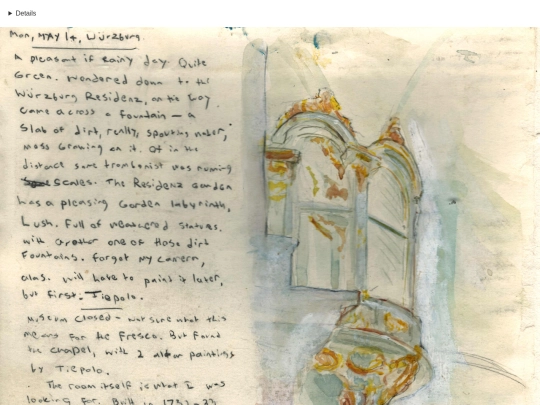 Details
Mon, MAY 14, Würzburg.
A pleasant if rainy day. Quite
Green. Wondered down to the
Würzburg Residenz, on the way
came across a fountain — a
Slab of dirt, really, spouting water,
moss Growing on it. Off in the
distance some trombonist was running
Scales. The Residenz Garden
has a pleasing Garden labyrinth,
Lush. Full of weathered statues.
with another one of those dirt
Fountains. Forgot my camera,
alas. Will have to paint it later,
but first. Tiepolo.
Museum Closed – not sure what this
means for the Fresco. But Found
the chapel, with 2 altar paintings
by Tiepolo.
The room itself is what I was
looking for. Built in